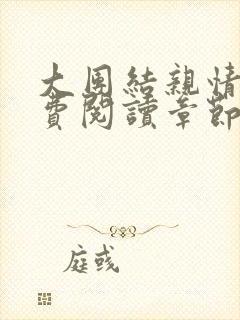 大團結親情
費閱讀章節
庭或